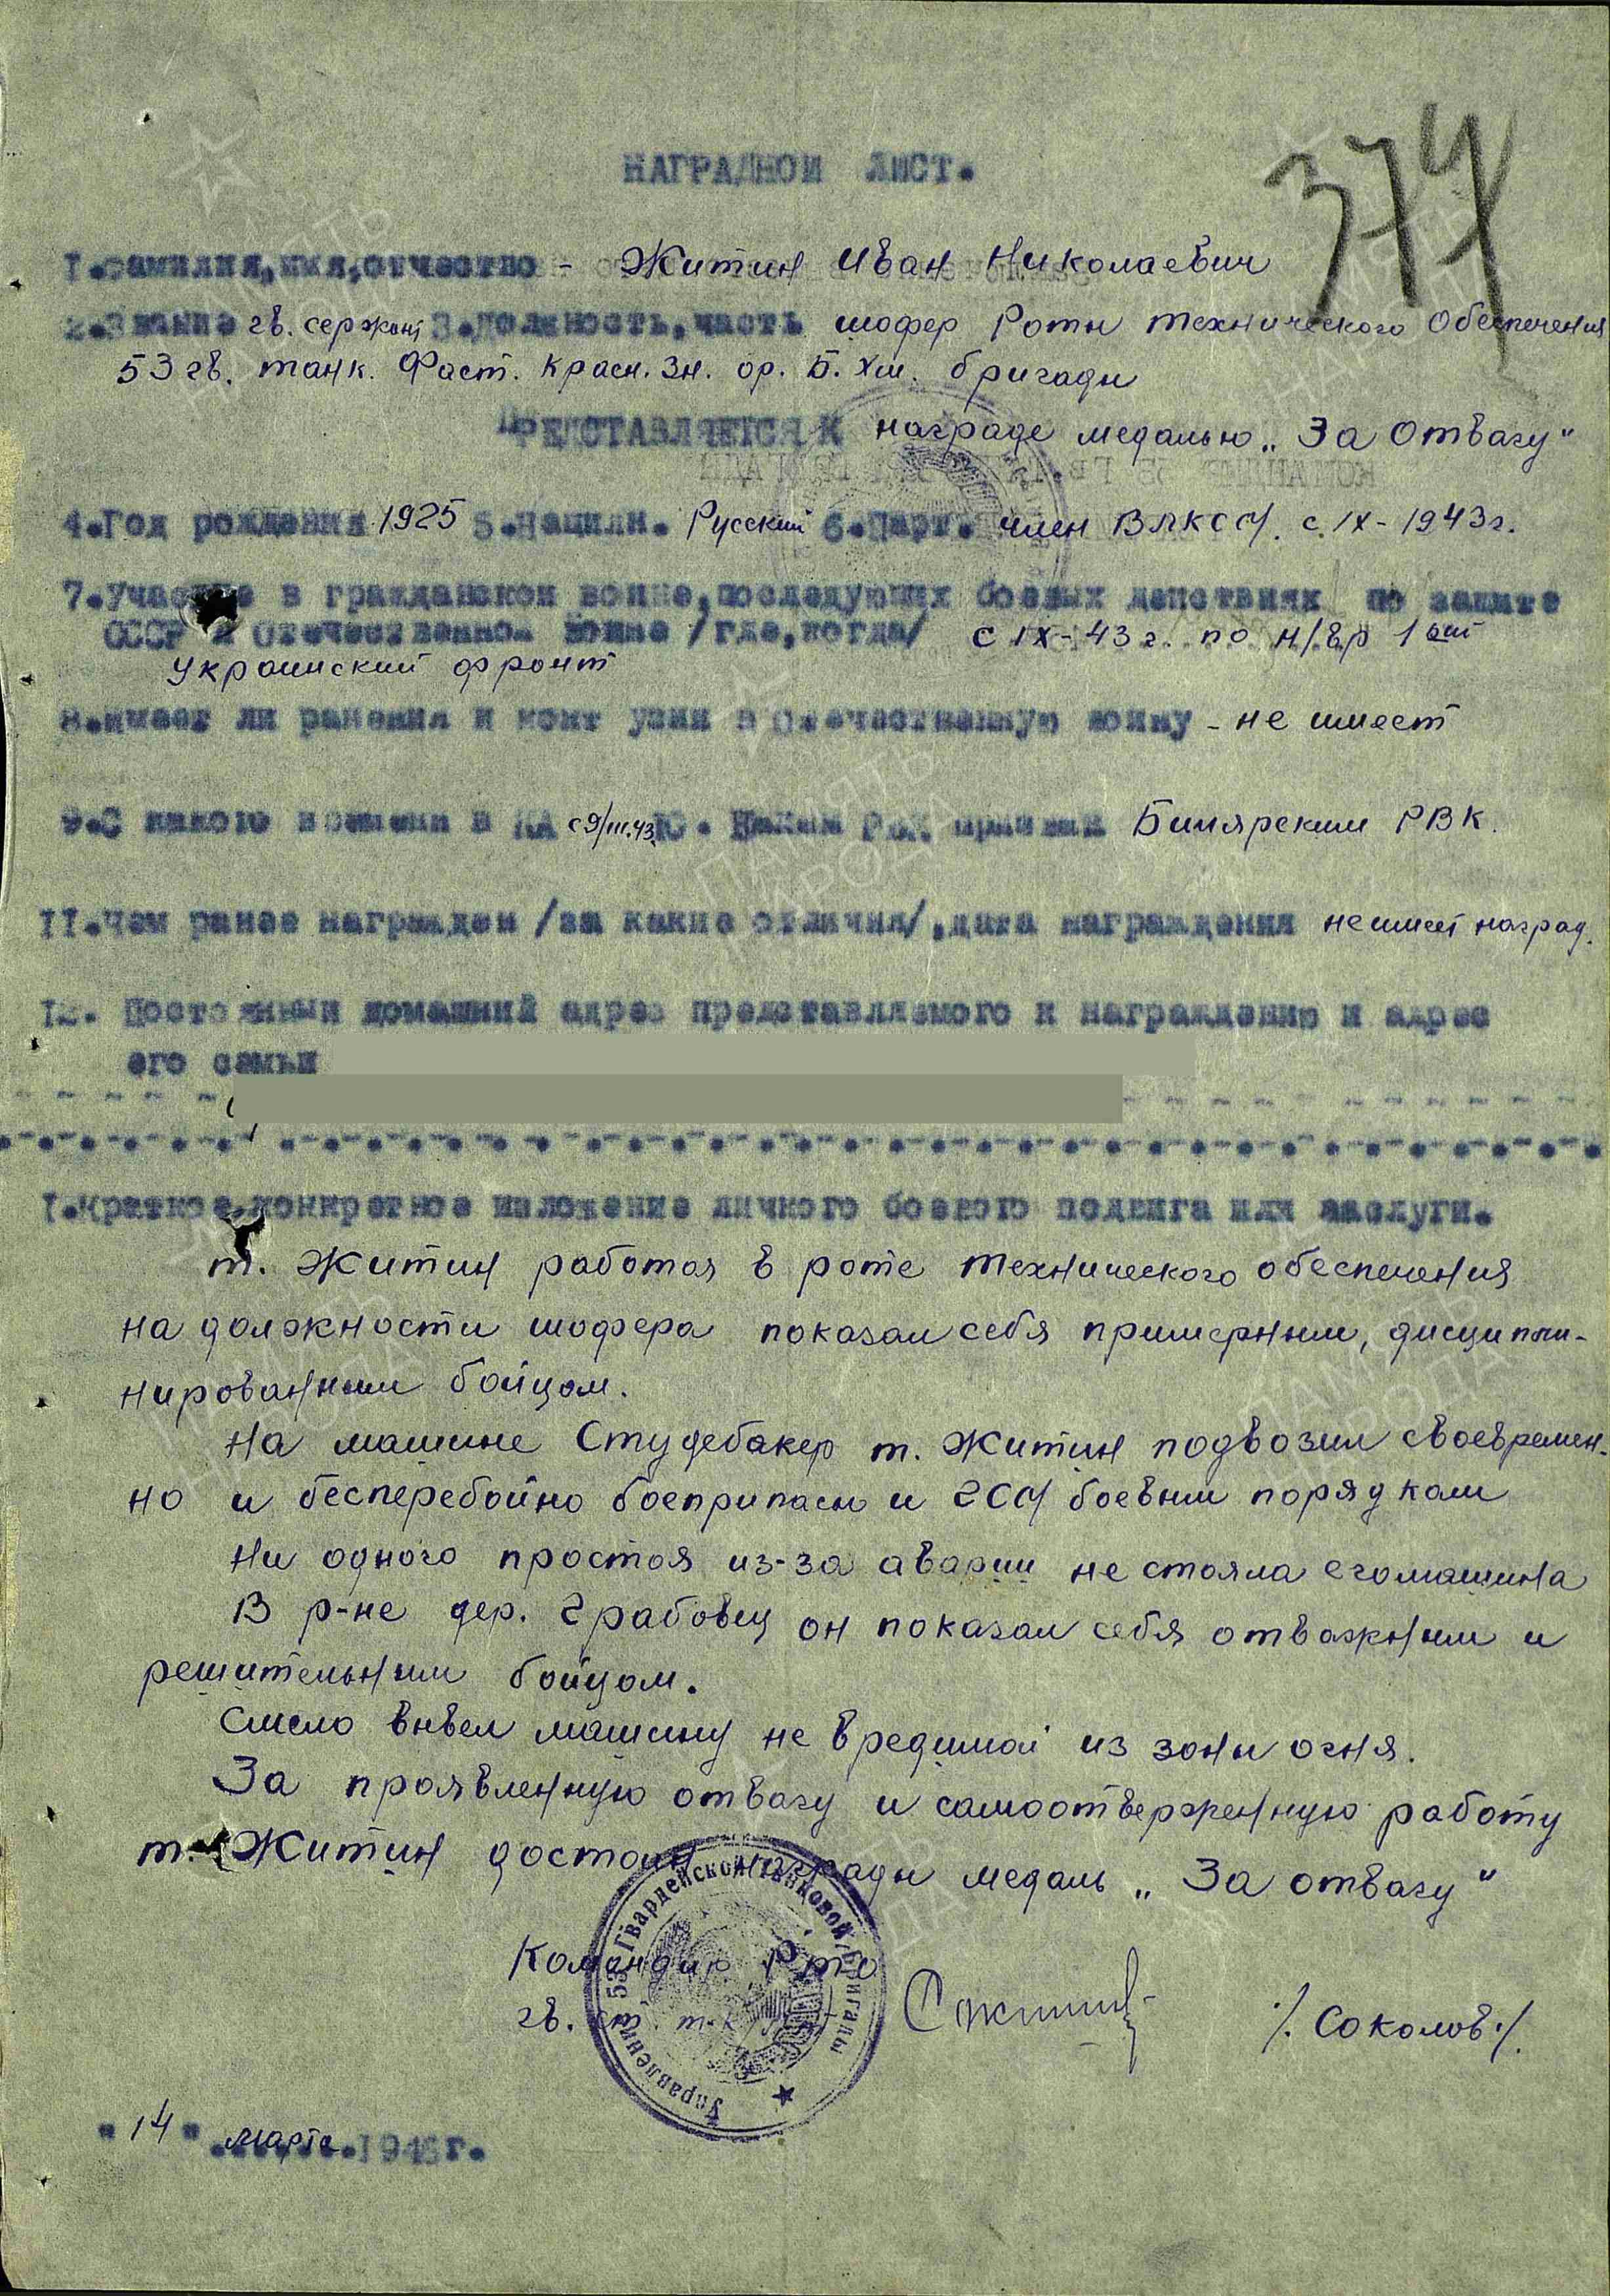 374
НАГРАДНОЙ ЛИСТ.
1.Фамилия,имя,отчество - Житин Иван Николаевич
2.Звание гв. сержант 3.Должность,часть шофер Роты технического Обеспечения
53 гв. танк. Фаст. Красн. Зн. ор. Б. Хм. бригады
ПРЕДСТАВЛЯЕТСЯ К награде медалью „За Отвагу"
4.Год рождения 1925 5.Национ. Русский 6.Парт. член ВЛКСМ. с IX-1943г.
7.Участие в гражданской войне,последующих боевых действиях по защите
СССР и Отечественной войне /где,когда/ с IX-43 г. по н/вр 1 ый
Украинский фронт
8.Имеет ли ранения и конт узии в Отечественную войну - не имеет
9.С какого времени в КА с 9/III.43 10. Каким РВК призван Билярским РВК.
11.Чем ранее награжден /за какие отличия/,дата награждения не имеет наград.
12. Постоянный домашний адрес представляемого к награждению и адрес
его семьи
1.Краткое,конкретное изложение личного боевого подвига или заслуги.
т. Житин работая в роте технического обеспечения
на должности шофера показал себя примерным, дисципли-
нированным бойцом.
На машине Студебакер т. Житин подвозил своевремен-
но и бесперебойно боеприпасы и ГСМ боевым порядкам
Ни одного простоя из-за аварии не стояла его машина
В р-не дер. Грабовец он показал себя отважным и
решительным бойцом.
Смело вывел машину не вредимой из зоны огня.
За проявленную отвагу и самоотверженную работу
т. Житин достоин награды медаль „За отвагу"
Командир Рто
гв. ст. т-к л-нт /. Соколов./
Управление 53 Гвардейской Танковой Бригады
"14" марта 1945г.